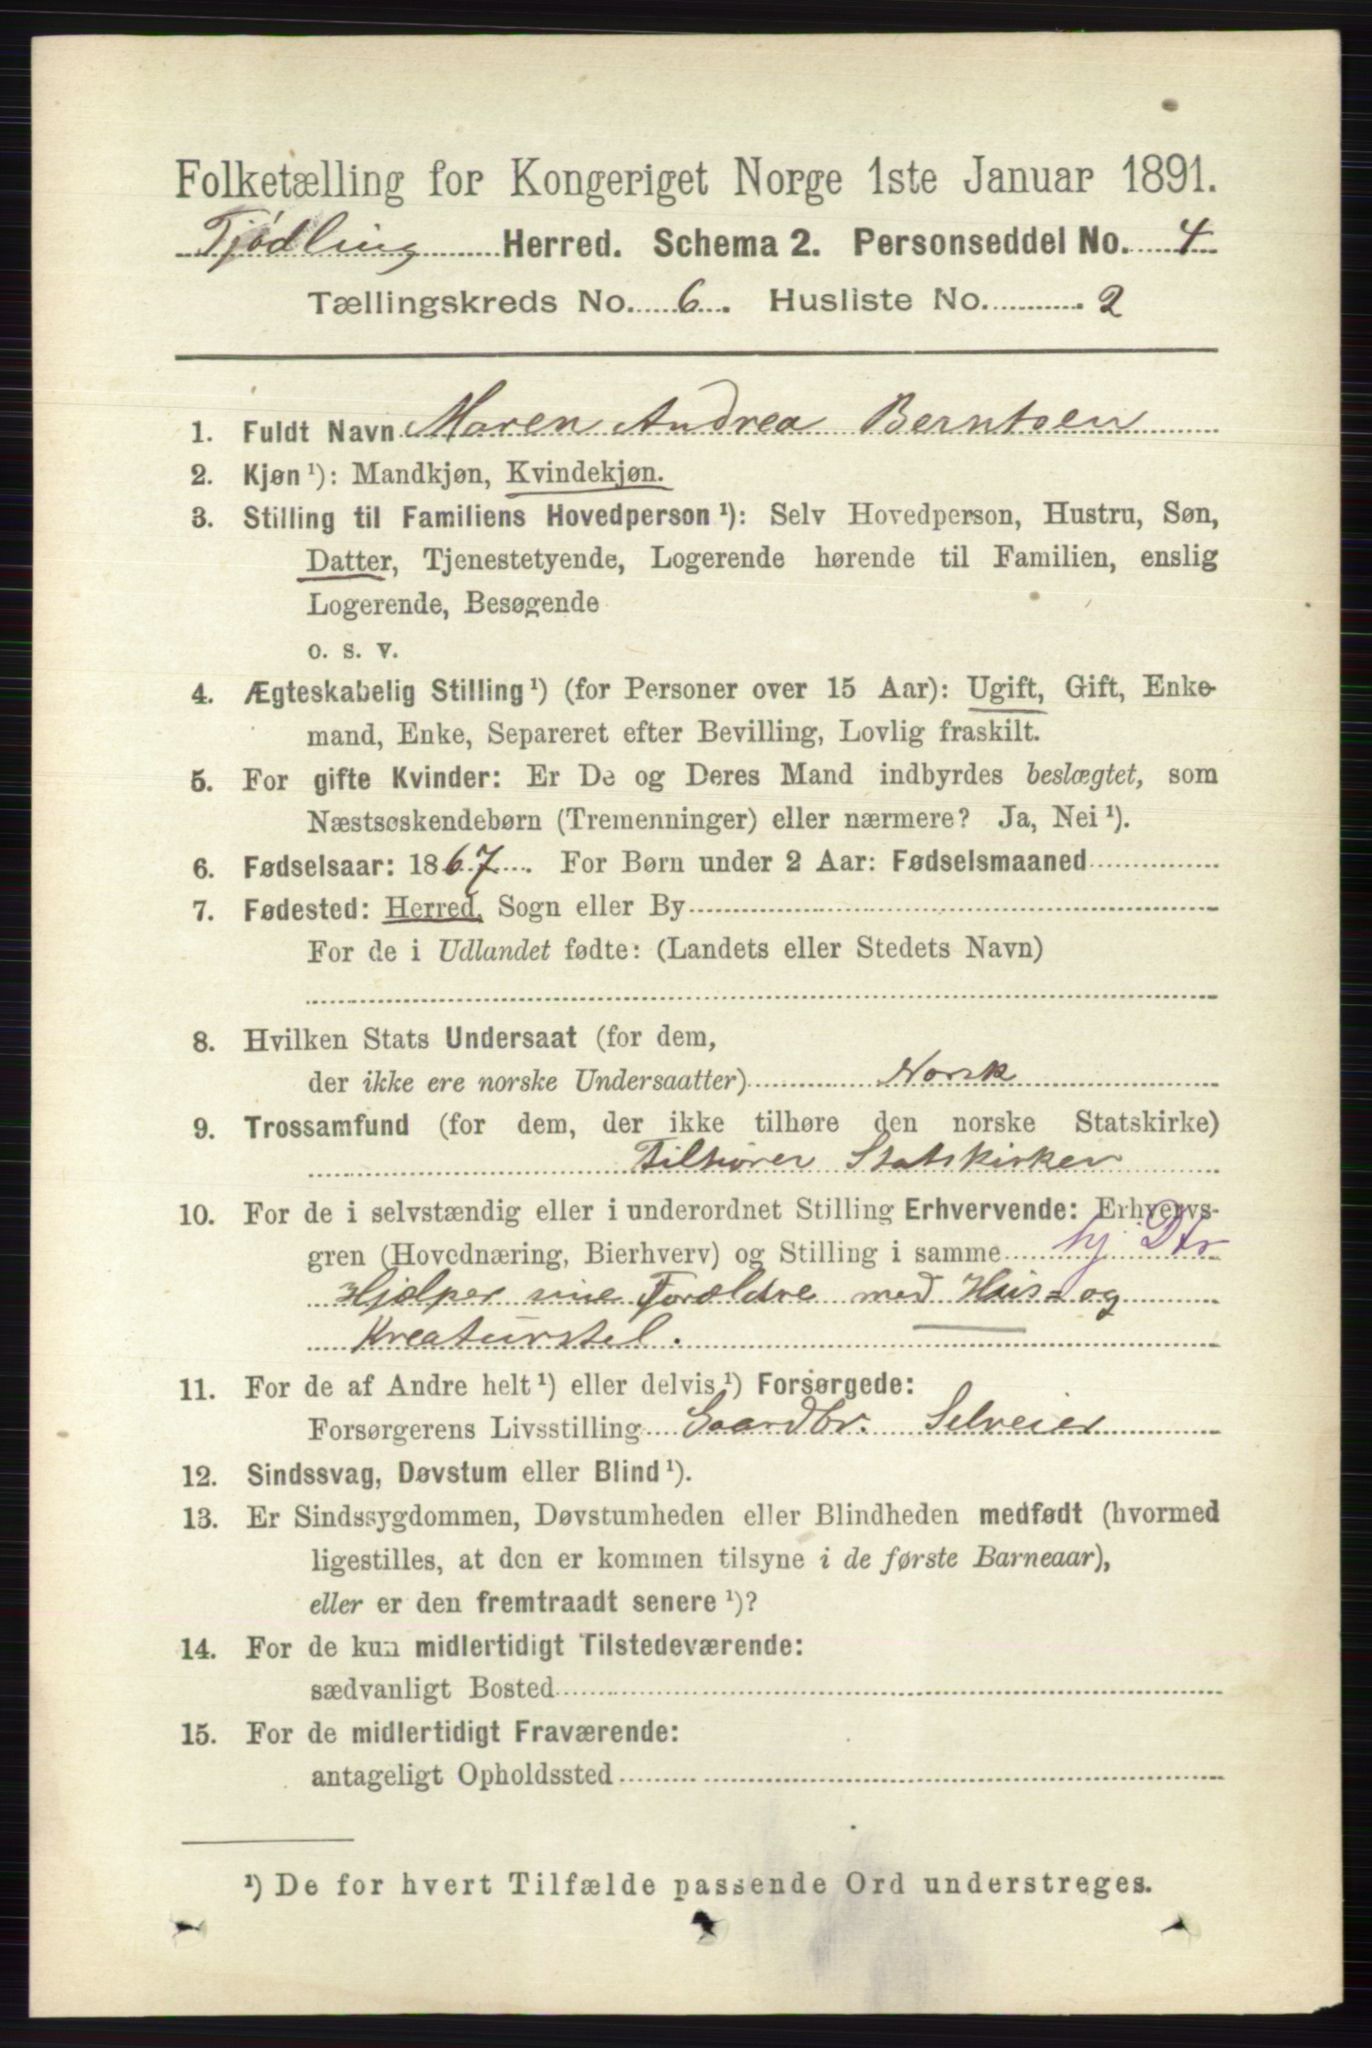 Folketælling for Kongeriget Norge 1ste Januar 1891.
Tjødling Herred. Schema 2. Personseddel No. 4
Tællingskreds No. 6. Husliste No. 2
1. Fuldt Navn Maren Andrea Berntsen
2. Kjøn¹): Mandkjøn, Kvindekjøn.
3. Stilling til Familiens Hovedperson¹): Selv Hovedperson, Hustru, Søn,
Datter, Tjenestetyende, Logerende hørende til Familien, enslig
Logerende, Besøgende
o. s. v.
4. Ægteskabelig Stilling¹) (for Personer over 15 Aar): Ugift, Gift, Enke-
mand, Enke, Separeret efter Bevilling, Lovlig fraskilt.
5. For gifte Kvinder: Er De og Deres Mand indbyrdes beslægtet, som
Næstsøskendebørn (Tremenninger) eller nærmere? Ja, Nei¹).
6. Fødselsaar: 1867. For Børn under 2 Aar: Fødselsmaaned
7. Fødested: Herred, Sogn eller By
For de i Udlandet fødte: (Landets eller Stedets Navn)
8. Hvilken Stats Undersaat (for dem,
der ikke ere norske Undersaatter) Norsk
9. Trossamfund (for dem, der ikke tilhøre den norske Statskirke)
Tilhører Statskirken
10. For de i selvstændig eller i underordnet Stilling Erhvervende: Erhvervs-
gren (Hovednæring, Bierhverv) og Stilling i samme hj. Dtr
Hjælper sine Forældre med Hus- og
Kreaturstel.
11. For de af Andre helt¹) eller delvis¹) Forsørgede:
Forsørgerens Livsstilling Gaardbr. Selveier
12. Sindssvag, Døvstum eller Blind¹).
13. Er Sindssygdommen, Døvstumheden eller Blindheden medfødt (hvormed
ligestilles, at den er kommen tilsyne i de første Barneaar),
eller er den fremtraadt senere¹)?
14. For de kun midlertidigt Tilstedeværende:
sædvanligt Bosted
15. For de midlertidigt Fraværende:
antageligt Opholdssted
¹) De for hvert Tilfælde passende Ord understreges.